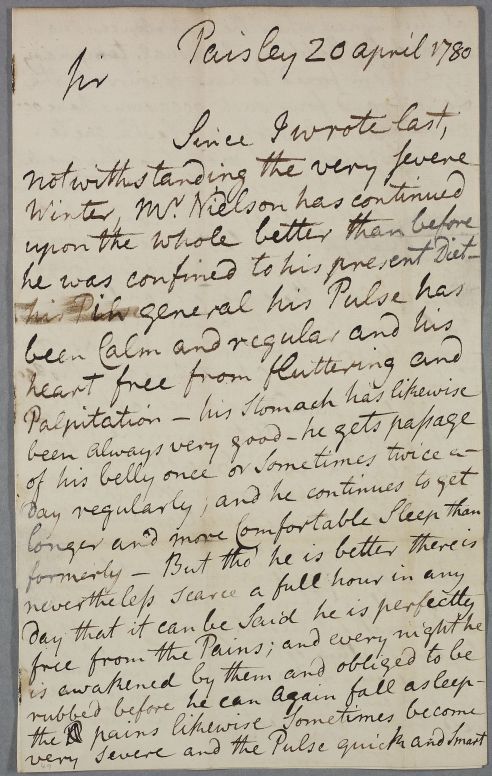 Paisley 20 april 1780
Sir
Since I wrote last,
notwithstanding the very severe
Winter, Mr. Nielson has continued
upon the whole better than before
he was confined to his present Diet-
general his Pulse has
been Calm and regular and his
heart free from fluttering and
Palpitation – his Stomach has likewise
been always very good – he gets passage
of his belly once or Sometimes twice a
Day regularly; and he continues to get
longer and more Comfortable Sleep than
formerly – But tho' he is better there is
nevertheless scarce a full hour in any
Day that it can be Said he is perfectly
free from the Pains; and every night he
is awakened by them and obliged to be
rubbed before he can again fall asleep-
the pains likewise Sometimes become
very severe and the Pulse quick and Smart